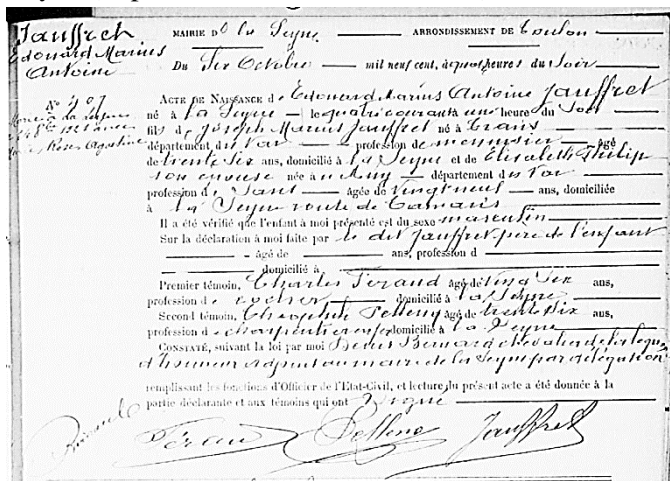 Jauffret
Edouard Marius
Antoine
MAIRIE D e la Seyne ARRONDISSEMENT DE Toulon
Du Six Octobre mil neuf cent, à quatre heures du Soir
N° 407
ACTE DE NAISSANCE de Edouard Marius Antoine Jauffret
né à La Seyne le quatre courant à une heure du Soir
fils de Joseph Marius Jauffret né à Trans
département du Var profession de menuisier âgé
de trente Six ans, domicilié à La Seyne et de Elisabeth Philip
son épouse née au Muy département du Var
profession de Sans âgée de vingt neuf ans, domiciliée
à La Seyne route de Tamaris
Il a été vérifié que l'enfant à moi présenté est du sexe masculin
Sur la déclaration à moi faite par le dit Jauffret père de l'enfant
âgé de ans, profession d
domicilié à
Premier témoin, Charles Féraud âgé de vingt Six ans,
profession de cocher domicilié à La Seyne
Second témoin, Pellenq âgé de trente Six ans,
profession de charpentier domicilié à La Seyne
CONSTATÉ, suivant la loi par moi Bernard chevalier de la légion
d'honneur adjoint au maire de la Seyne par délégation
remplissant les fonctions d'Officier de l'Etat-Civil, et lecture du présent acte a été donnée à la
partie déclarante et aux témoins qui ont signé
Féraud Pellenq Jauffret